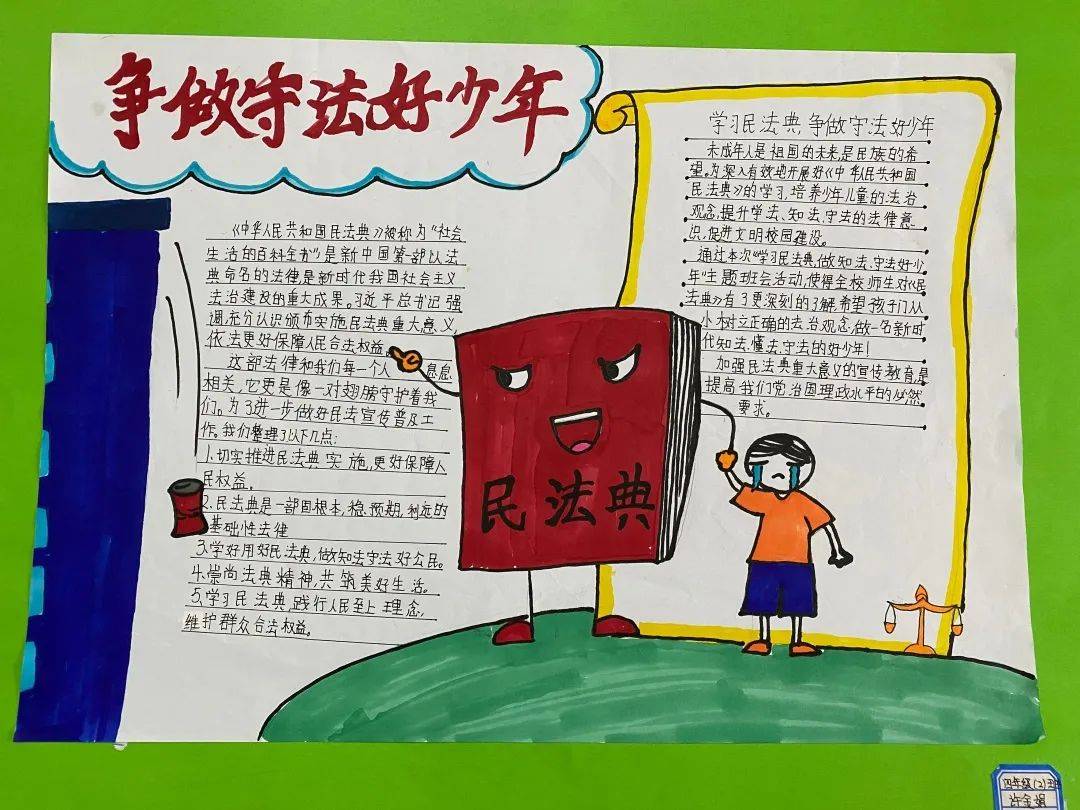 争做守法好少年
《中华人民共和国民法典》被称为“社会
生活的百科全书”是新中国第一部以法
典命名的法律是新时代我国社会主义
法治建设的重大成果。习近平总书记强
调,充分认识颁布实施民法典重大意义
依法更好保障人民合法权益。
这部法律和我们每一个人息息
相关,它更是像一对翅膀守护着我
们。为了进一步做好民法宣传普及工
作。我们整理了以下几点:
1.切实推进民法典实施,更好保障人
民权益。
2.民法典是一部固根本、稳预期、利远的
基础性法律
3.学好用好民法典,做知法守法好公民。
4.崇尚法典精神,共筑美好生活。
5.学习民法典,践行人民至上理念,
维护群众合法权益。
民法典
学习民法典,争做守法好少年
未成年人是祖国的未来,是民族的希
望。为深入有效地开展好《中华人民共和国
民法典》的学习,培养少年儿童的法治
观念,提升学法、知法、守法的法律意
识,促进文明校园建设。
通过本次“学习民法典,做知法、守法好少
年”主题班会活动,使得全校师生对《民
法典》有了更深刻的了解,希望孩子们从
小树立正确的法治观念,做一名新时
代知法、懂法、守法的好少年!
加强民法典重大意义的宣传教育是
提高我们党治国理政水平的必然
要求。
四年级(2)班